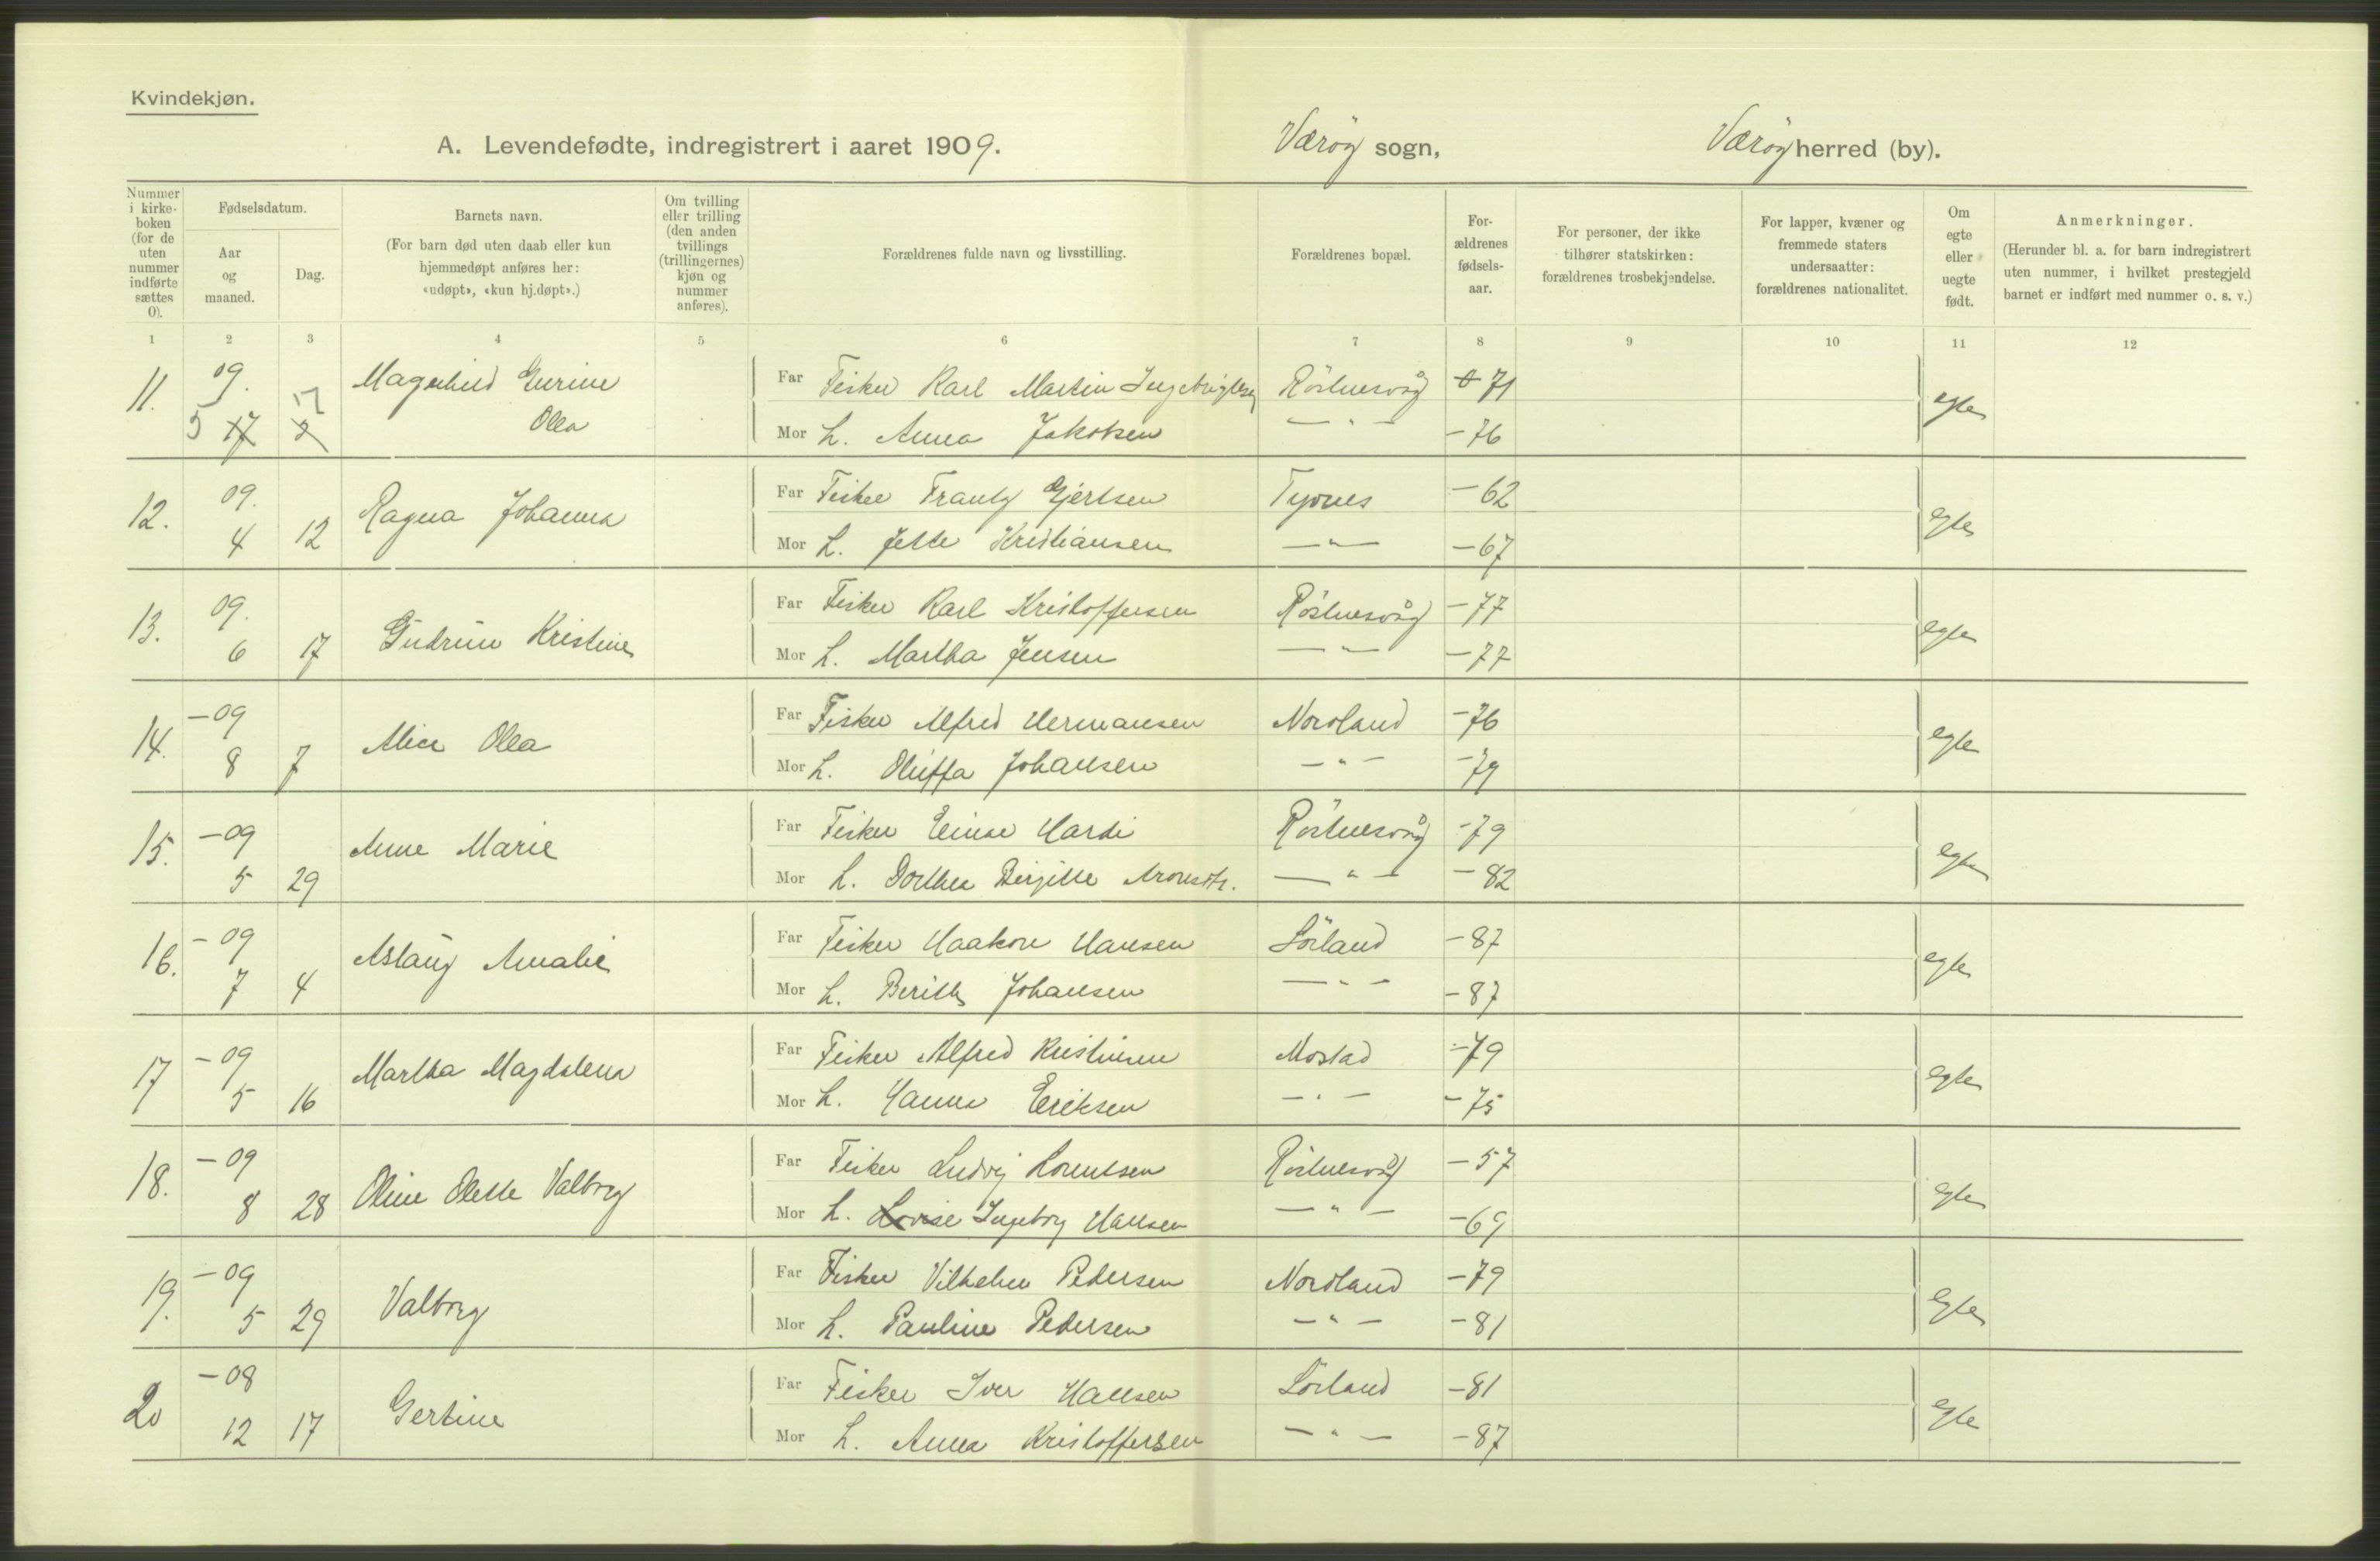 Kvindekjøn.
A. Levendefødte, indregistrert i aaret 1909. Værøy sogn, Værøy herred (by).
Nummer i kirke-boken (for de uten nummer indførte sættes 0).
Fødselsdatum.
Aar og maaned.
Dag.
Barnets navn.
(For barn død uten daab eller kun hjemmedøpt anføres her: «udøpt», «kun hj.døpt».)
Om tvilling eller trilling (den anden tvillings (trillingernes) kjøn og nummer anføres).
Forældrenes fulde navn og livsstilling.
Forældrenes bopæl.
For-ældrenes fødsels-aar.
For personer, der ikke tilhører statskirken: forældrenes trosbekjendelse.
For lapper, kvæner og fremmede staters undersaatter: forældrenes nationalitet.
Om egte eller uegte født.
Anmerkninger.
(Herunder bl. a. for barn indregistrert uten nummer, i hvilket prestegjeld barnet er indført med nummer o. s. v.)
1 2 3 4 5 6 7 8 9 10 11 12
11. 09. 17 Magnhild Gurine Far Fisker Karl Martin Ingebrigtsen Röstnesvåg 71 egte
5 17 2 Olea Mor h. Anna Jakobsen — " — -76
12. 09. Ragna Johanna Far Fisker Frantz Gjertsen Tyvnes -62 egte
4 12 Mor h. Jette Kristiansen — " — -67
13. 09. Gudrun Kristine Far Fisker Karl Kristoffersen Röstnesvåg -77 egte
6 17 Mor h. Martha Jensen — " — -77
14. -09 Alice Olea Far Fisker Alfred Hermansen Nordland -76 egte
8 7 Mor h. Oluffa Johansen — " — -79
15. -09 Anne Marie Far Fisker Einar Hardi Röstnesvåg -79 egte
5 29 Mor h. Dorthea Birgitte Aronsdtr. — " — -82
16. -09 Aslaug Amalie Far Fisker Haakon Hansen Sörland -87 egte
7 4 Mor h. Berith Johansen — " — -87
17 -09 Martha Magdalena Far Fisker Alfred Kristiansen Mostad -79 egte
5 16 Mor h. Hanna Eriksen — " — -75
18. -09 Oline Elette Valborg Far Fisker Ludvig Lorentsen Röstnesvåg -57 egte
8 28 Mor h. Lovise Ingeborg Hansen — " — -69
19. -09 Valborg Far Fisker Vilhelm Pedersen Nordland -79 egte
5 29 Mor h. Pauline Pedersen — " — -81
20 -08 Gertine Far Fisker Iver Hansen Sörland -81 egte
12 17 Mor h. Anna Kristoffersen — " — -87